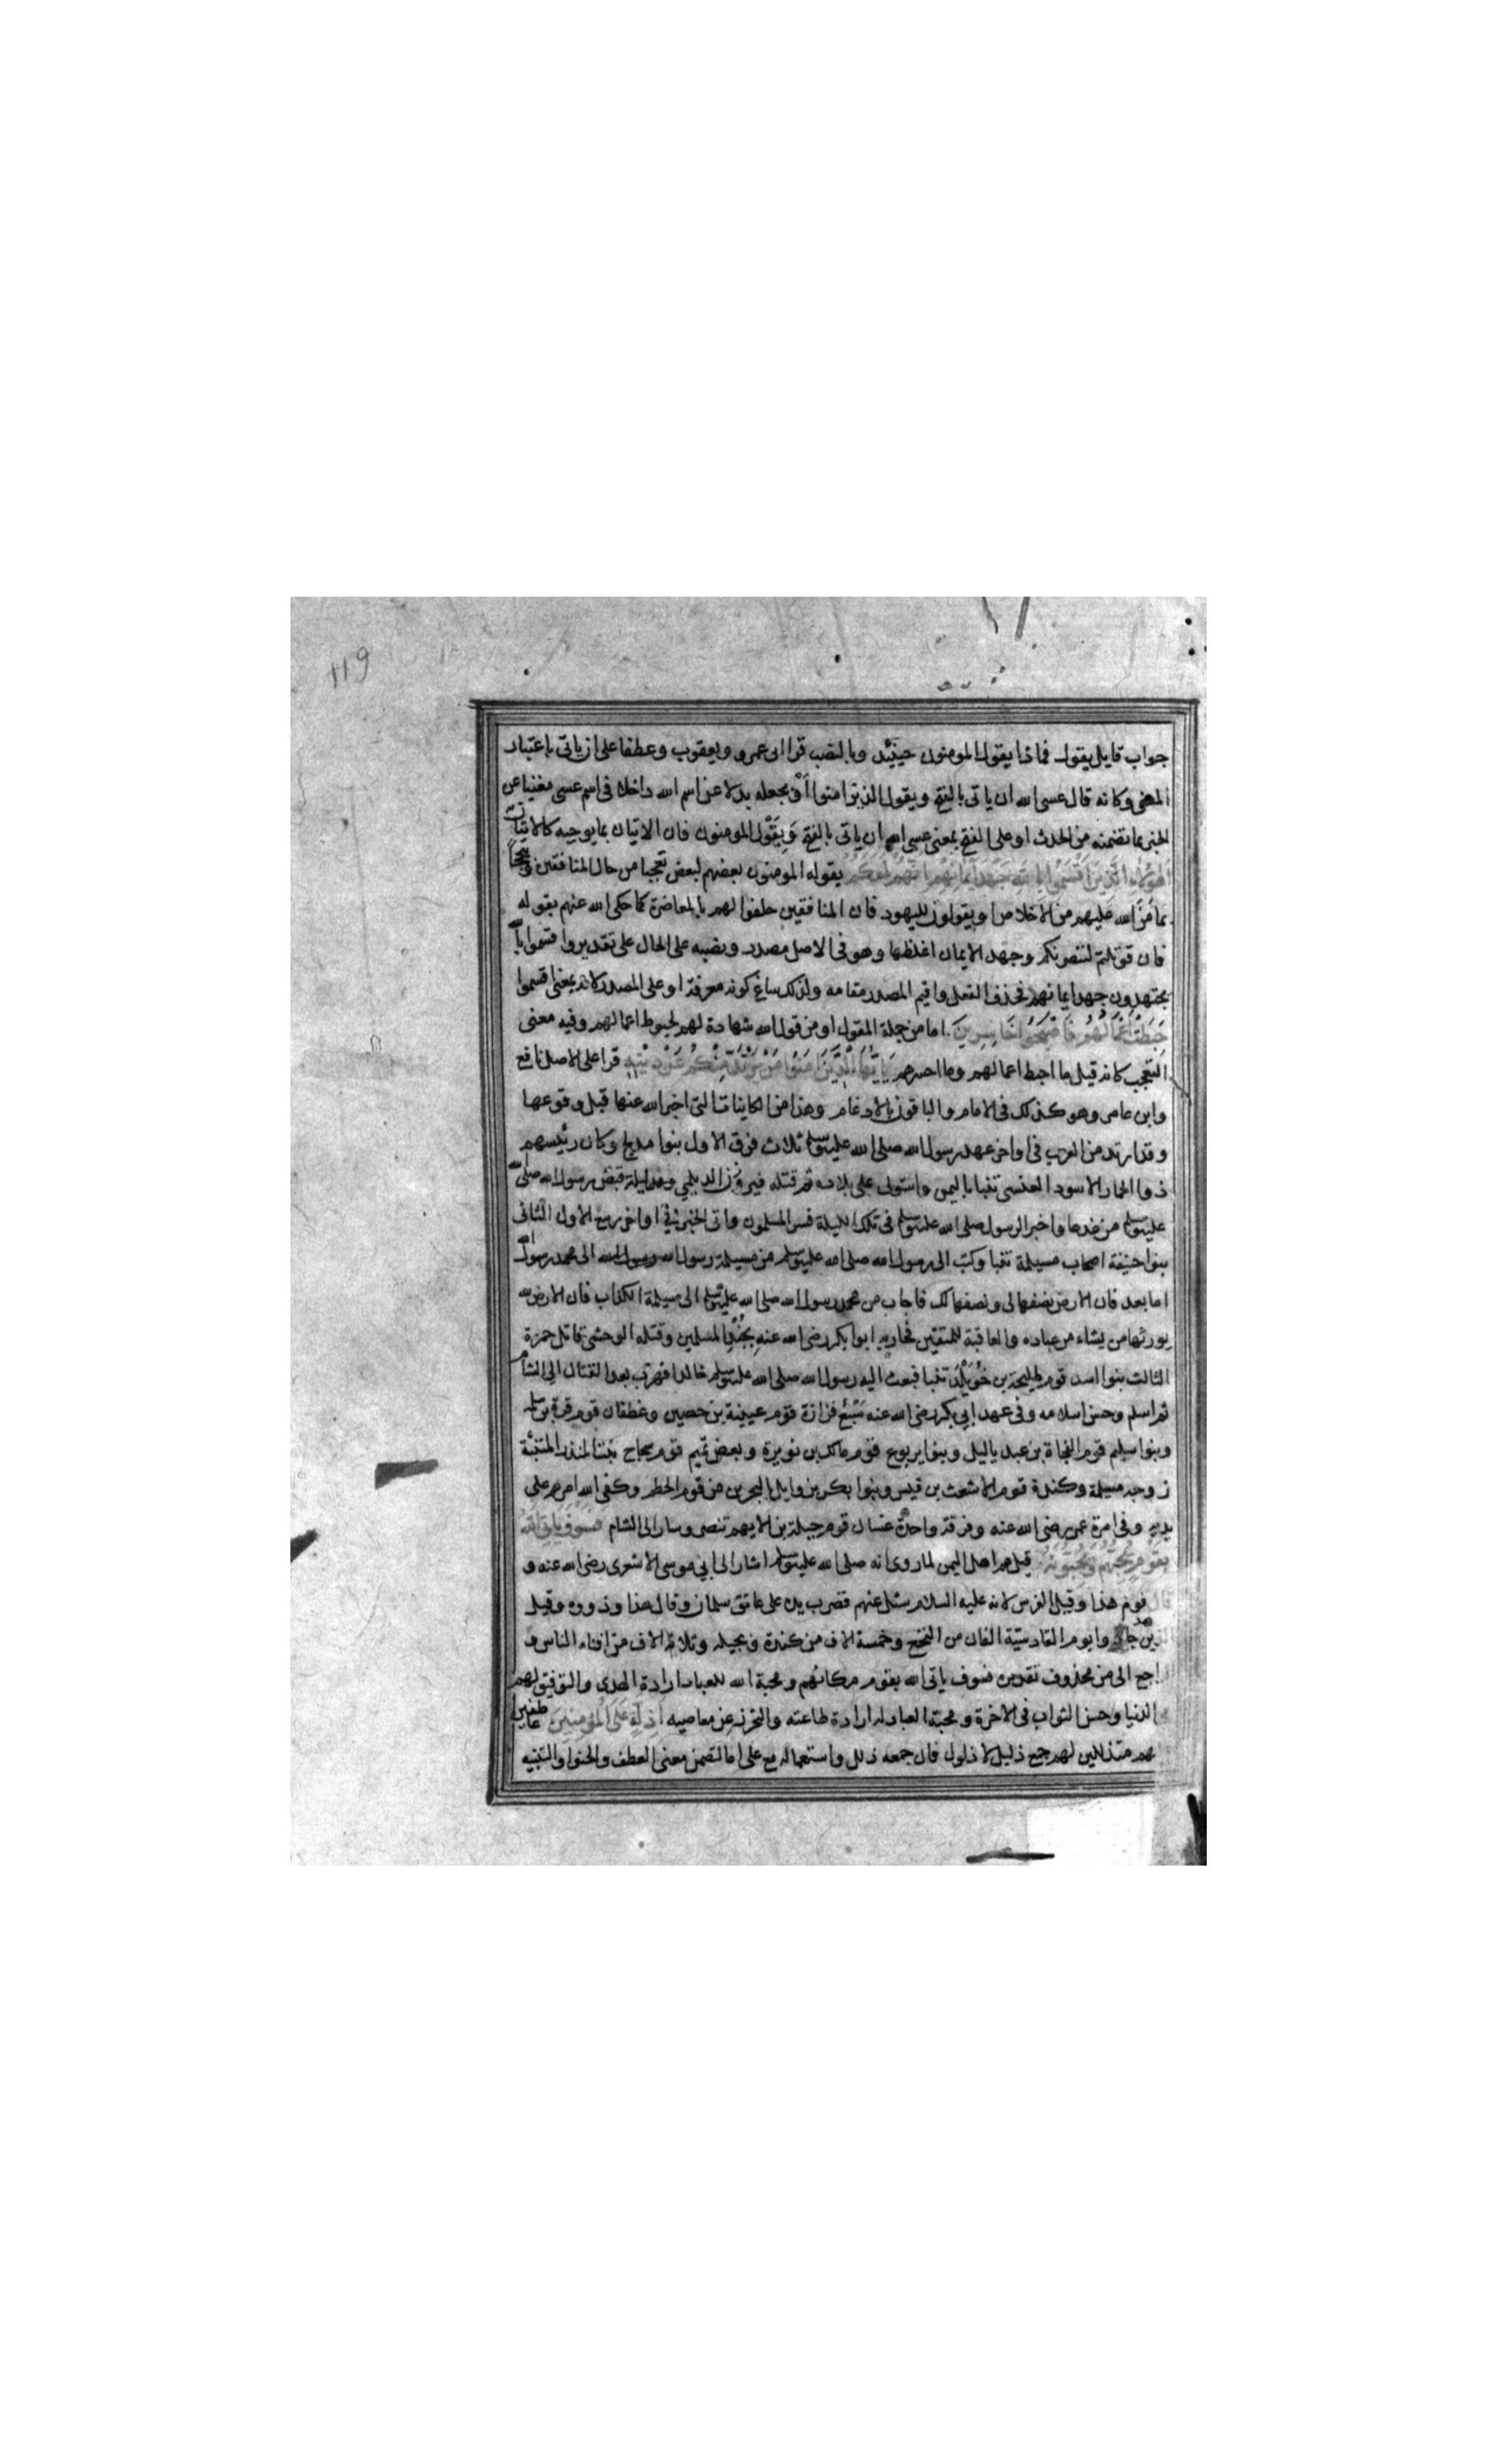 119
جواب قايل يقول فماذا يقول المومنون حينئذ وبالنصب قرا ابى عمرو ويعقوب وعطفا على ان ياتى باعتبار
المعنى وكانه قال عسى الله ان ياتى بالفتح ويقول الذين امنوا او بجعله بدلا عن اسم الله داخلا فى اسم عسى مغنيا عن
الخبر بما تضمنه من الحدث او على الفتح بمعنى عسى الله ان ياتى بالفتح وَبِقَوْل المومنون فان الاتيان بما يوجبه كالاتيان به
أهؤلاء الذين اقسموا بالله جهد ايمانهم انهم لمعكم يقوله المومنون بعضهم لبعض تعجبا من حال المنافقين وتبجحا
بما مَنَّ الله عليهم من الاخلاص او يقولون لليهود فان المنافقين حلفوا لهم بالمعاضدة كما حكى الله عنهم بقوله
فان قوتلتم لننصرنكم وجهد الايمان اغلظها وهو فى الاصل مصدر ونصبه على الحال على تقدير واقسموا بالله
يجتهدون جهد ايمانهم فحذف الفعل واقيم المصدر مقامه ولذلك ساغ كونه معرفة او على المصدر لانه بمعنى اقسموا
حَبَطَتْ اَعْمَالُهُمْ فَاَصْبَحُوا خَاسِرِينَ اما من جملة المقول او من قول الله شهادة لهم لحبوط اعمالهم وفيه معنى
التعجب كانه قيل ما احبط اعمالهم وما اخسرهم يَاَيُّهَا الَّذِينَ اٰمَنُوا مَنْ يَرْتَدَّ مِنْكُمْ عَنْ دِيْنِهِ قرا على الاصل نافع
وابن عامر وهو كذلك فى الامام والباقون بالادغام وهذا من الكاينات التى اخبر الله عنها قبل وقوعها
وقد ارتد من العرب فى اواخر عهد رسول الله صلى الله عليه وسلم ثلاث فرق الاول بنوا مدلج وكان رئيسهم
ذوا الحمار الاسود العنسى تنبا باليمن واستولى على بلاده ثم قتله فيروز الديلمي ليلة قبض رسول الله صلى الله
عليه وسلم من غدها واخبر الرسول صلى الله عليه وسلم فى تلك الليلة فسر المسلمون واتى الخبر فى اواخر ربيع الاول الثانى
بنوا حنيفة اصحاب مسيلمة تنبا وكتب الى رسول الله صلى الله عليه وسلم من مسيلمة رسول الله الى محمد رسول الله
اما بعد فان الارض نصفها لى ونصفها لك فاجاب من محمد رسول الله صلى الله عليه وسلم الى مسيلمة الكذاب فان الارض لله
يورثها من يشاء من عباده والعاقبة للمتقين فحاربه ابوا بكر رضى الله عنه بِجُنْدِ المسلمين وقتله الوحشى قاتل حمزة
الثالث بنوا اسد قوم طليحة بن خُوَيْلِد تنبا فبعث اليه رسول الله صلى الله عليه وسلم خالدا فهرب بعد القتال الى الشام
ثم اسلم وحسن اسلامه وفى عهد ابى بكر رضى الله عنه سَبْعٌ فزازة قوم عيينة بن حصين وغطفان قوم قرة بن سلمه
وبنوا سليم قوم الفجاة بن عبد ياليل وبنوا يربوع قوم مالك بن نويرة وبعض تميم قوم سجاح بنت المنذر المتنبئة
زوجه مسيلمة وكندة قوم الاشعث بن قيس وبنوا بكر بن وايل بالبحرين من قوم الحطم وكفى الله امرهم على
يديه وفى امرة عمر رضى الله عنه وفرقة واحدة غسان قوم جبلة بن الايهم تنصر وسار الى الشام فَسَوْفَ يَاتِى اللّٰهُ
بِقَوْمٍ يُحِبُّهُمْ وَيُحِبُّونَهُ قيل هم اهل اليمن لما روى انه صلى الله عليه وسلم اشار الى ابى موسى الاشعرى رضى الله عنه و
قال قوم هذا وقيل الفرس لانه عليه السلام سئل عنهم فضرب يده على عاتق سلمان وقال هذا وذووه وقيل
الذين جاهدوا يوم القادسيّة الفان من النخع وخمسة الاف من كندة وبجيله وثلاثة الاف من افناء الناس و
راجع الى من محذوف تقديره فسوف ياتى الله بقوم مكانهم ومحبة الله للعباد ارادة الهدى والتوفيق لهم
الدنيا وحسن الثواب فى الاخرة ومحبة العباد له ارادة طاعته والتحرز عن معاصيه اَذِلَّةٍ عَلَى الْمُؤْمِنِينَ عاطفين
لهم متذللين لهم جمع ذليل لا ذلول فان جمعه ذلل واستعماله مع على اما لتضمن معنى العطف والحنو او التنبيه